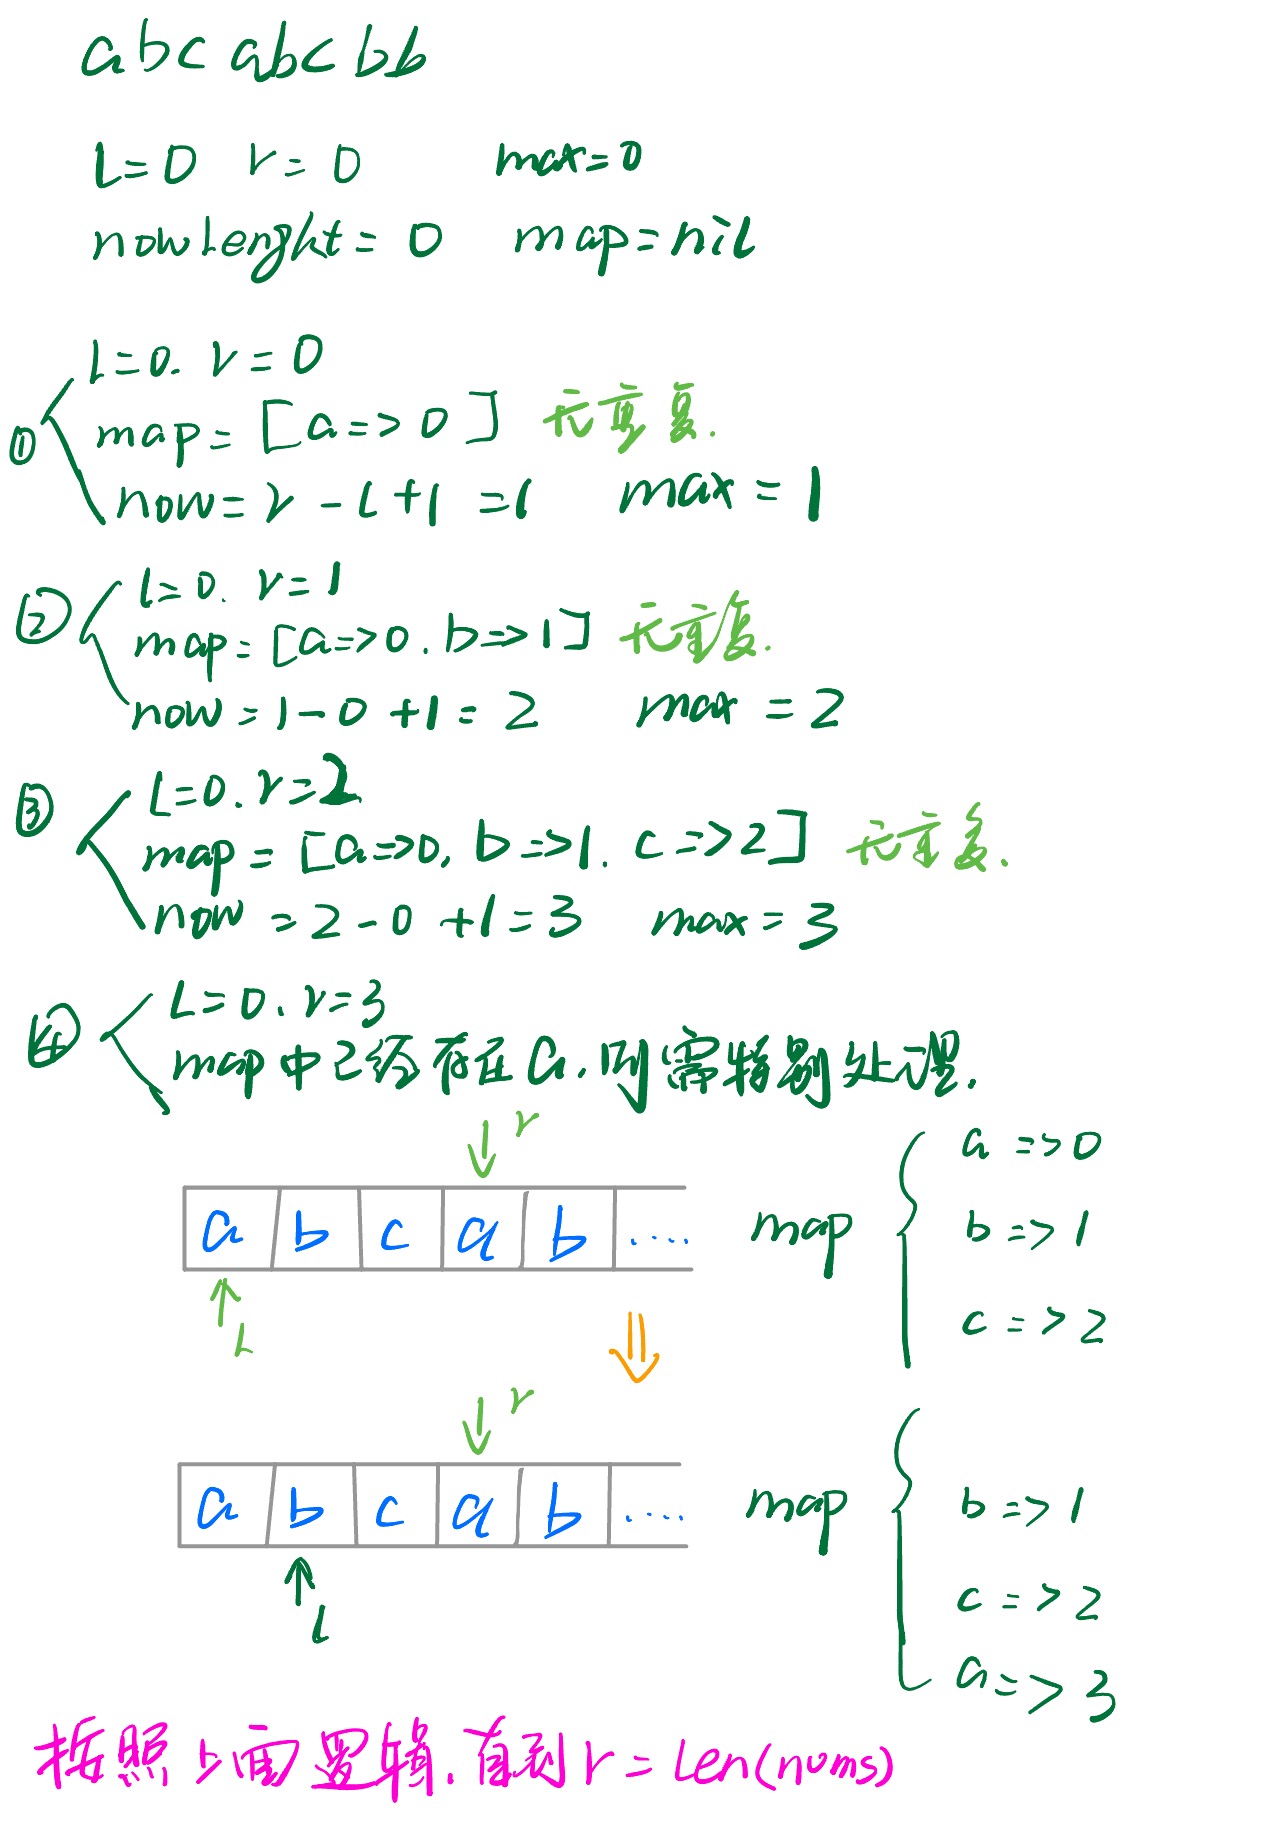 abcabcbb
L=0 r=0 max=0
nowLenght=0 map=nil
① l=0. r=0
map=[a=>0] 无重复.
now=r-l+1=1 max=1
② l=0. r=1
map=[a=>0. b=>1] 无重复.
now=1-0+1=2 max=2
③ L=0. r=2
map=[a=>0, b=>1. c=>2] 无重复.
now=2-0+1=3 max=3
④ L=0. r=3
map中已经存在a.则需特别处理.
r
a b c a b .... map a=>0
b=>1
c=>2
L
r
a b c a b .... map b=>1
c=>2
a=>3
l
按照上面逻辑.直到r=Len(nums)